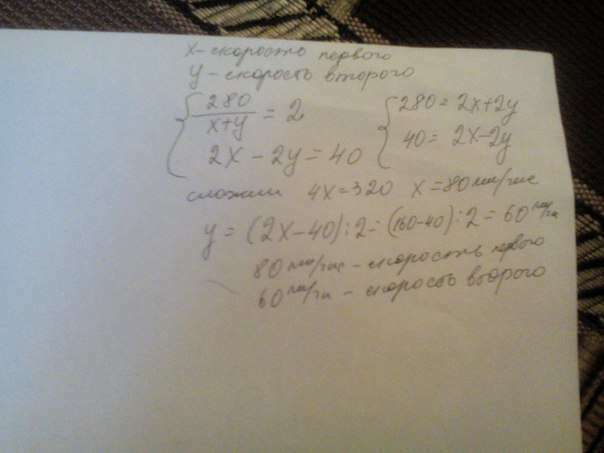 x - скорость первого
y - скорость второго
{ 280/(x+y) = 2 { 280 = 2x+2y
2x - 2y = 40 40 = 2x-2y
сложим 4x=320 x = 80 км/час
y = (2x-40):2 = (160-40):2 = 60 км/ч
80 км/час - скорость первого
60 км/ч - скорость второго